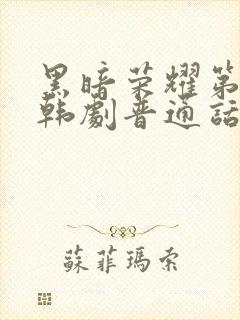 黑暗荣耀第
韩劇普通话
蘇菲瑪索